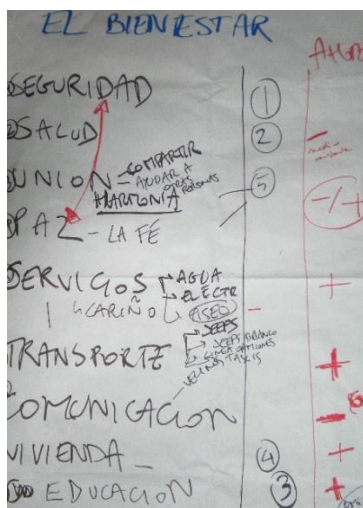 EL BIENESTAR
SEGURIDAD 1
SALUD 2 -
UNION - COMPARTIR
AYUDAR A
OTRAS
PERSONAS
HARMONIA 5 -/+
PAZ - LA FÉ
SERVICIOS AGUA +
ELECTR
CARIÑO ASEO -
JEEPS
TRANSPORTE JEEPS BLANCO +
TAXIS
COMUNICACION -
VIVIENDA - 4 +
EDUCACION 3 +